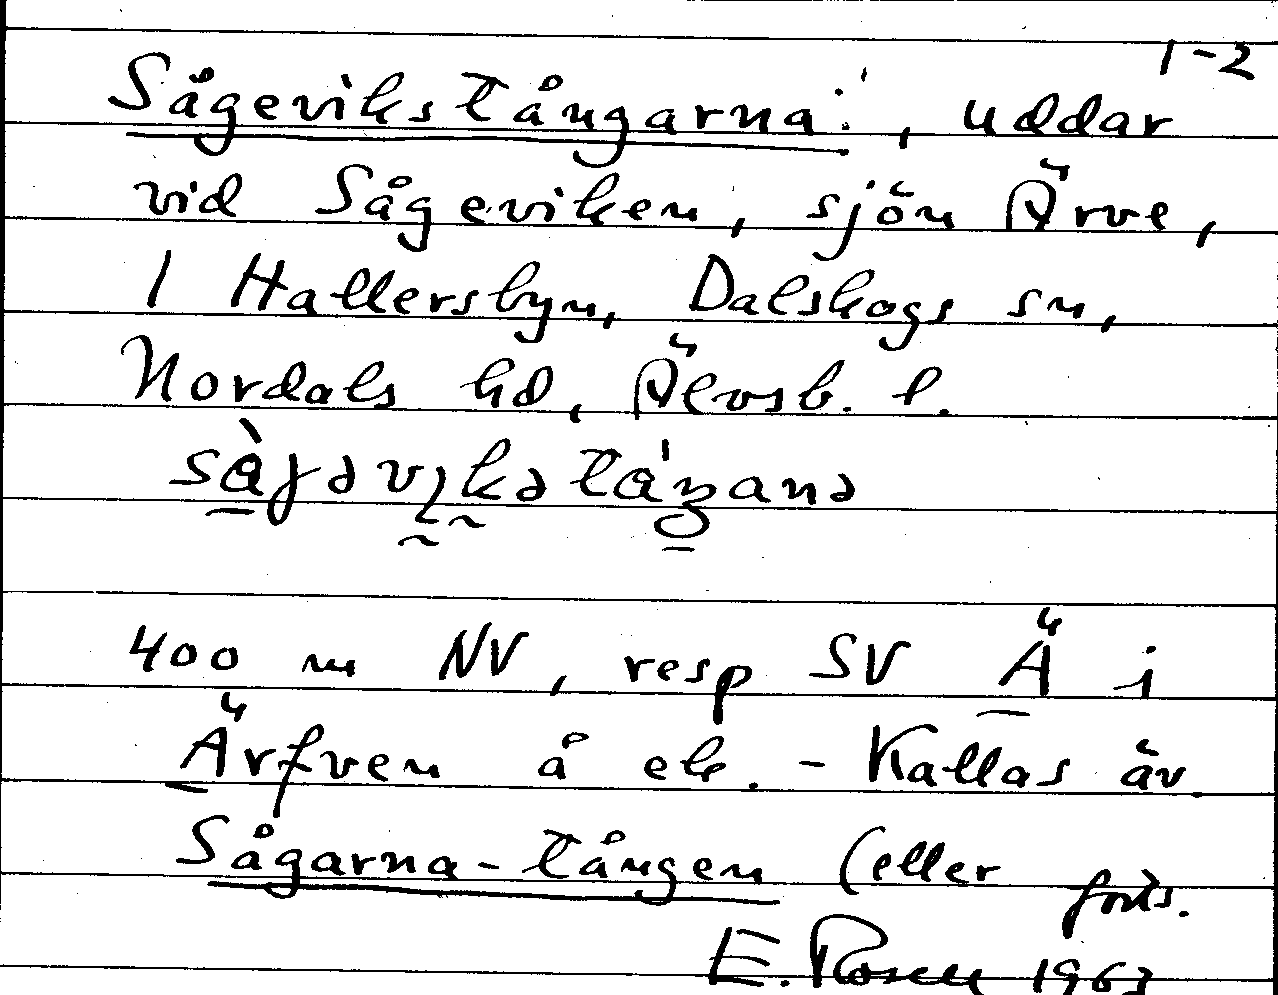 1-2
Sågevikstångarna, uddar
vid Sågeviken, sjön Ärve,
1 Hallersbyn, Dalskogs sn,
Nordals hd, Älvsb. l.
400 m NV, resp SV Ä i
Ärfven å ek. - Kallas äv.
Sågarna-tången (eller forts.
E. Rosen 1963